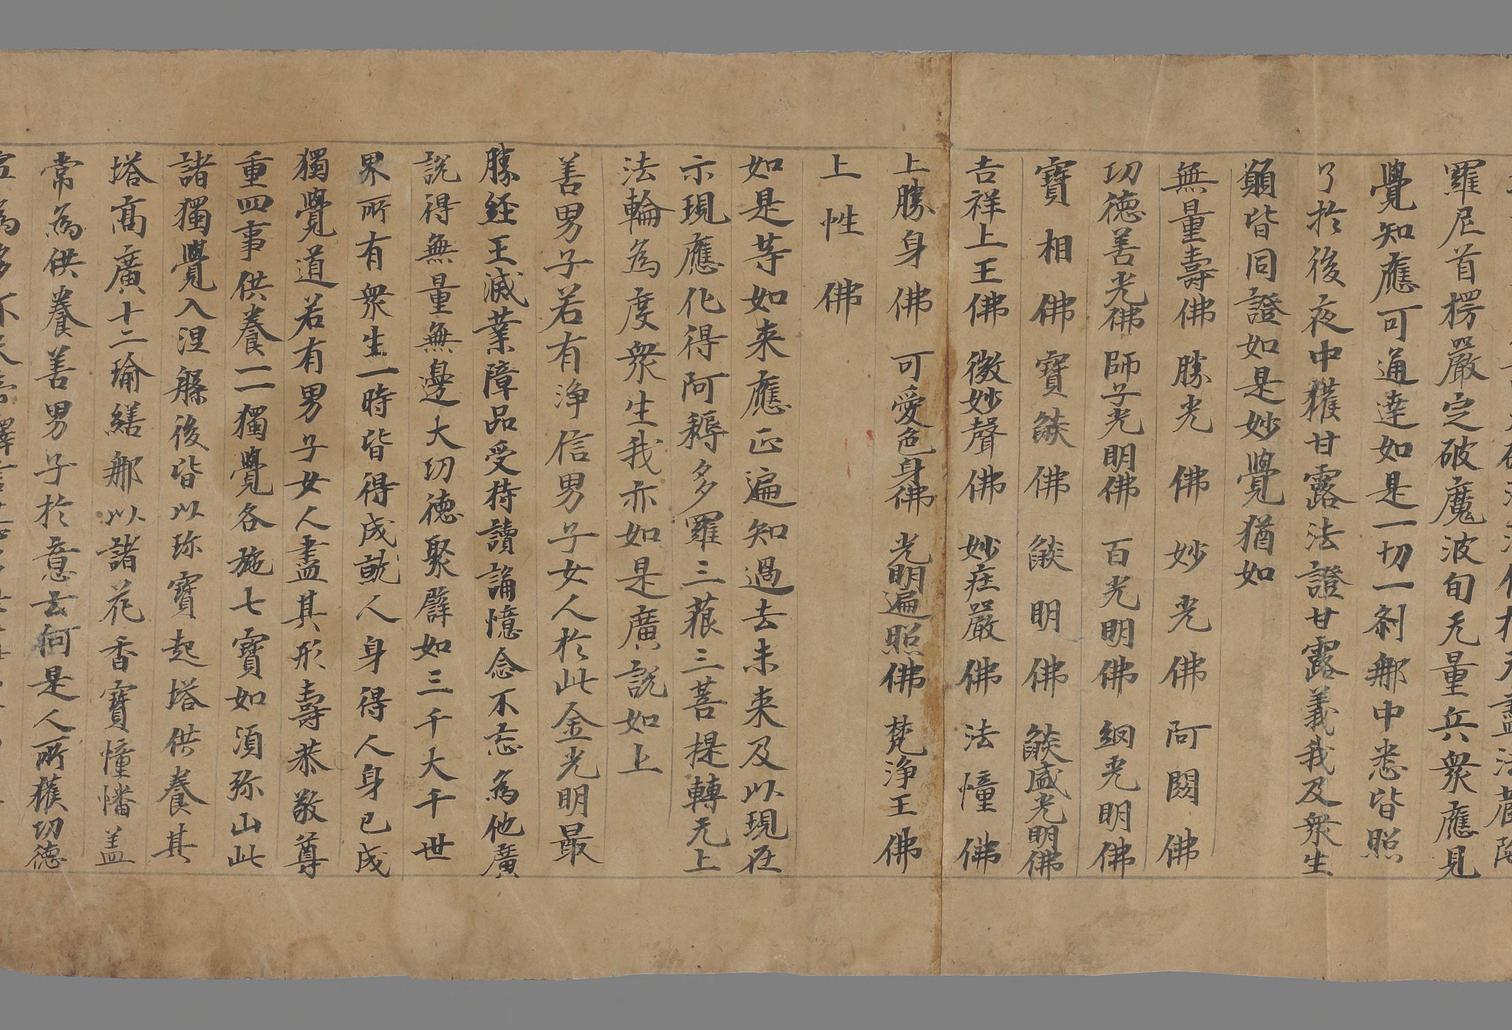 羅尼首楞嚴定破魔波旬无量兵衆應見
覺知應可通達如是一切一剎那中悉皆照
了於後夜中獲甘露法證甘露義我及衆生
願皆同證如是妙覺猶如
無量壽佛 勝光佛 妙光佛 阿閦佛
功德善光佛 師子光明佛 百光明佛 網光明佛
寶相佛 寶燄佛 燄明佛 燄盛光明佛
吉祥上王佛 微妙聲佛 妙莊嚴佛 法幢佛
上勝身佛 可愛色身佛 光明遍照佛 梵淨王佛
上性佛
如是等如来應正遍知過去未来及以現在
示現應化得阿耨多羅三藐三菩提轉无上
法輪為度衆生我亦如是廣說如上
善男子若有淨信男子女人於此金光明最
勝經王滅業障品受持讀誦憶念不忘為他廣
說得無量無邊大功德聚譬如三千大千世
界所有衆生一時皆得成就人身得人身已成
獨覺道若有男子女人盡其形壽恭敬尊
重四事供養一一獨覺各施七寶如須弥山此
諸獨覺入涅槃後皆以珎寶起塔供養其
塔高廣十二瑜繕那以諸花香寶幢幡蓋
常為供養善男子於意云何是人所獲功德